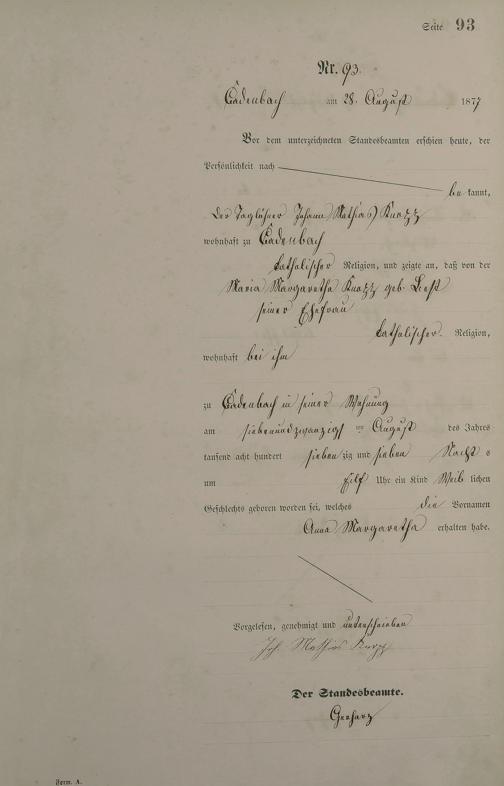 Seite 93
Nr. 93.
Cadenbach am 28. August 1877
Vor dem unterzeichneten Standesbeamten erschien heute, der
Persönlichkeit nach
be kannt,
der Taglöhner Johann Mathias
wohnhaft zu Cadenbach
katholischer Religion, und zeigte an, daß von der
Maria Margaretha geb.
seiner Ehefrau
katholischer Religion,
wohnhaft bei ihm
zu Cadenbach in seiner Wohnung
am siebenundzwanzigst en August des Jahres
tausend acht hundert sieben zig und sieben Nacht s
um Eilf Uhr ein Kind Weib lichen
Geschlechts geboren worden sei, welches die Vornamen
Anna Margaretha erhalten habe.
Vorgelesen, genehmigt und unterschrieben
Joh. Mathias
Der Standesbeamte.
Gerharz
Form. A.